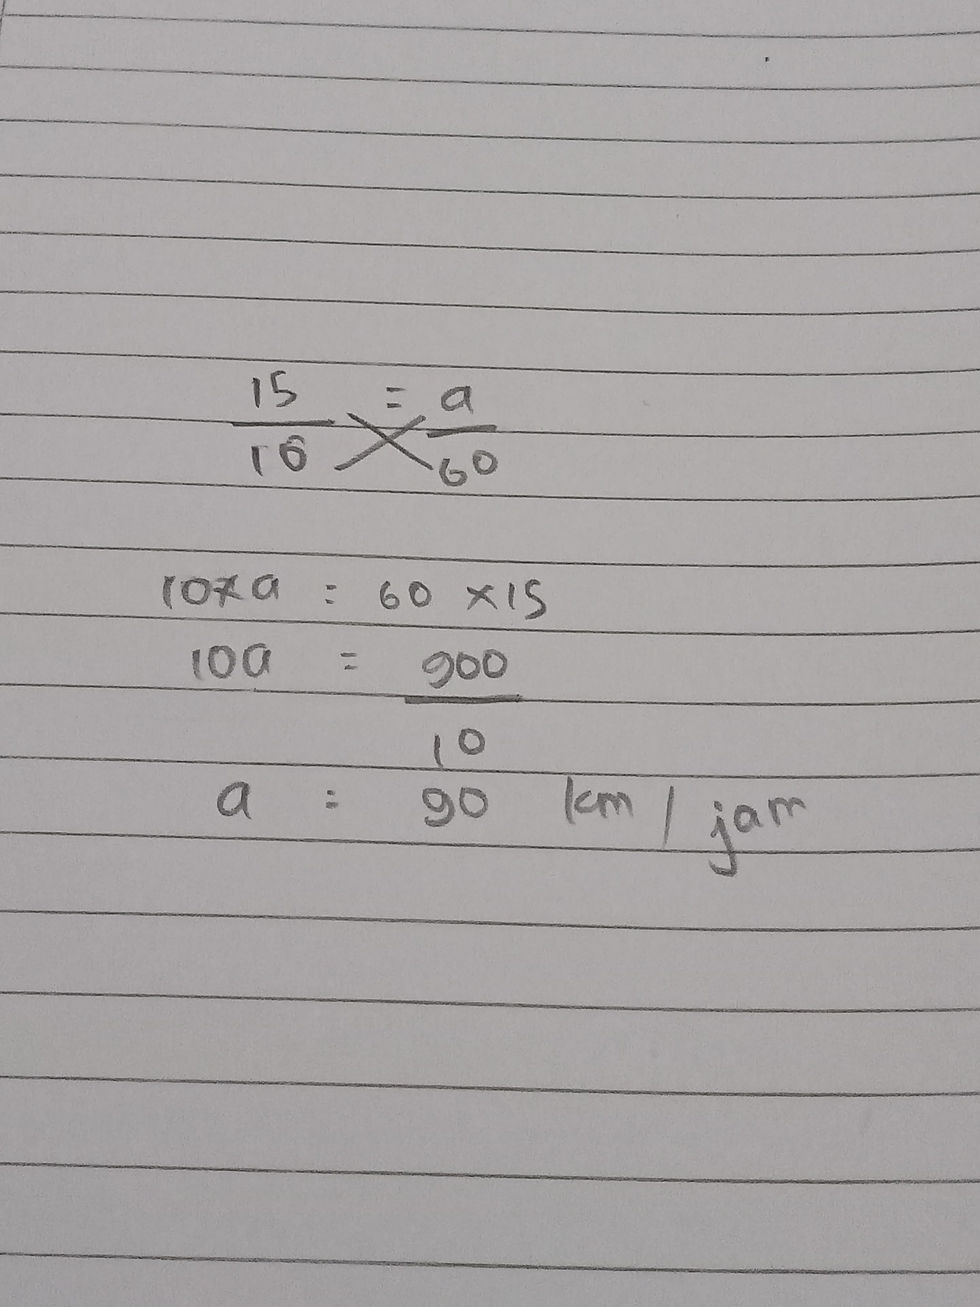 15 = a
10 60
10 x a = 60 x 15
10a = 900
10
a = 90 km / jam